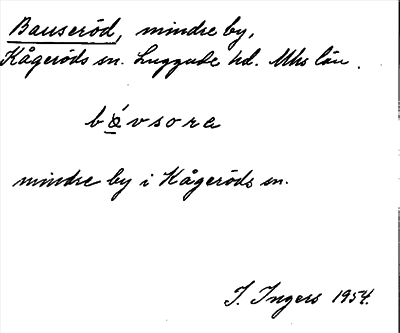 Bauseröd, mindre by,
Kågeröds sn. Luggude hd. Mhs län.
bǻvsora
mindre by i Kågeröds sn.
I. Ingers 1954.